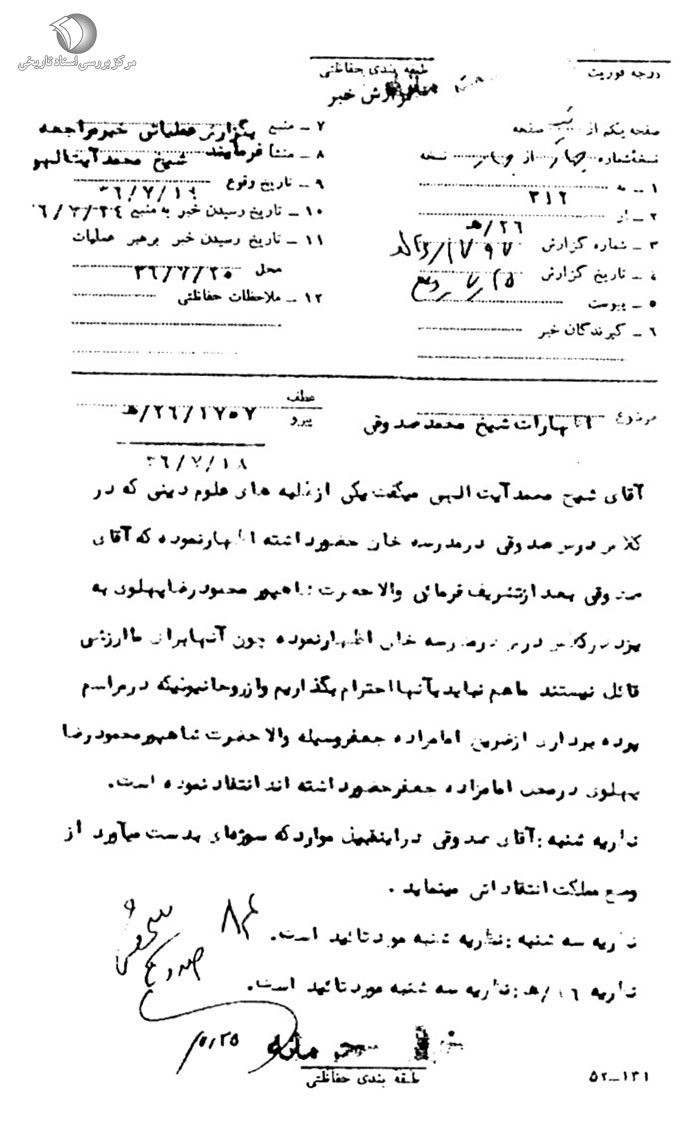 مرکز بررسی اسناد تاریخی
درجه فوریت
طبقه بندی حفاظتی
گزارش خبر
صفحه یکم از یک صفحه
نسخه شماره چهار از چهار نسخه
۱ – به ۳۱۲
۲ – از ۲۶/هـ
۳ – شماره گزارش
۴ – تاریخ گزارش
۵ – پیوست
۶ – گیرندگان خبر
۷ – منبع بگزارش عطفی خبر مراجعه
۸ – منشأ فرمایند شیخ محمد آیت الهی
۹ – تاریخ وقوع ۳۶/۷/۱۹
۱۰ – تاریخ رسیدن خبر به منبع
۱۱ – تاریخ رسیدن خبر برهبر عملیات
محل ۳۶/۷/۲۵
۱۲ – ملاحظات حفاظتی
موضوع اظهارات شیخ محمد صدوقی
عطف
پیرو ۲۶/۱۷۵۷/هـ
۳۶/۷/۱۸
آقای شیخ محمد آیت الهی میگفت یکی از طلبه های علوم دینی که در
کلاس درس صدوقی در مدرسه خان حضور داشته اظهار نموده که آقای
صدوقی بعد از تشریف فرمائی والا حضرت شاهپور محمود رضا پهلوی به
یزد در کلاس درس در مدرسه خان اظهار نموده چون آنها برای ما ارزشی
قائل نیستند ما هم نباید بآنها احترام بگذاریم و از روحانیونیکه در مراسم
پرده برداری از ضریح امامزاده جعفر وسیله والا حضرت شاهپور محمود رضا
پهلوی در صحن امامزاده جعفر حضور داشته اند انتقاد نموده است.
نظریه شنبه : آقای صدوقی در اینقبیل موارد که سوژه ای بدست میآورد از
وضع مملکت انتقاداتی مینماید .
نظریه سه شنبه : نظریه شنبه مورد تائید است.
نظریه ۲۶/هـ : نظریه سه شنبه مورد تائید است.
صدوقی
محرمانه
طبقه بندی حفاظتی
۵۲–۱۳۱